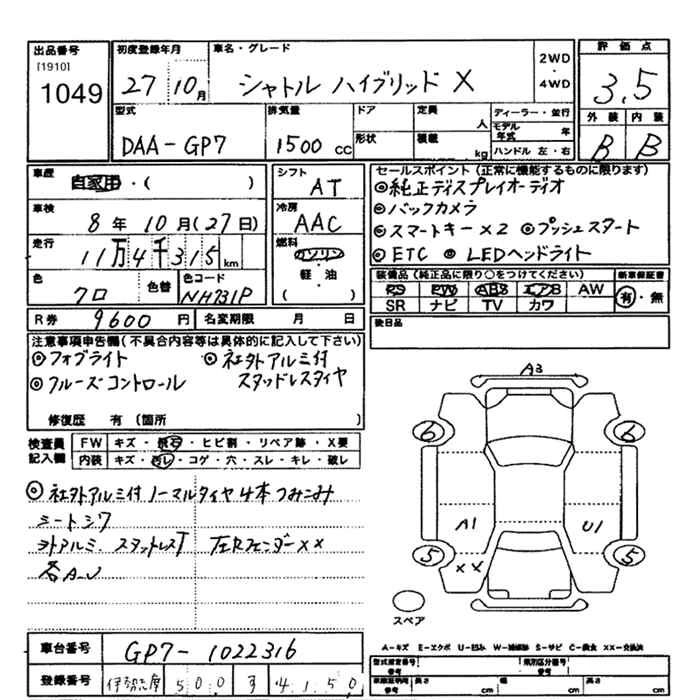 出品番号
[1910]
1049
初度登録年月
27 10月
車名・グレード
シャトル ハイブリッド X
2WD
・
4WD
評価点
3.5
外装 内装
B B
型式
DAA-GP7
排気量
1500 cc
ドア
形状
定員
人
積載
kg
ディーラー・並行
モデル年式 年
ハンドル 左・右
車歴
自家用・( )
車検
8年10月(27日)
走行
11万4千315km
色
クロ
色替
色コード
NH731P
シフト
AT
冷房
AAC
燃料
ガソリン
・
軽・油
( )
セールスポイント(正常に機能するものに限ります)
◎純正ディスプレイオーディオ
◎バックカメラ
◎スマートキー×2 ◎プッシュスタート
◎ETC ◎LEDヘッドライト
装備品(純正品に限り○をつけてください)
PS PW ABS エアB AW
SR ナビ TV カワ
新車保証書
有・無
R券 9600円
名変期限 月 日
後日品
注意事項申告欄(不具合内容等は具体的に記入して下さい)
◎フォグライト ◎社外アルミ付
◎クルーズコントロール スタッドレスタイヤ
修復歴 有(箇所
検査員
記入欄
FW キズ・飛石・ヒビ割・リペア跡・X要
内装 キズ・汚レ・コゲ・穴・スレ・キレ・破レ
◎社外アルミ付ノーマルタイヤ4本つみこみ
シートシワ
外アルミ スタットレス 左Rフェンダー××
各A-U
A3
6 6
A1 U1
5 5
××
スペア
A-キズ E-エクボ U-凹み W-補修跡 S-サビ C-腐食 XX-交換済
車台番号
GP7-1022316
登録番号
伊勢志摩 500 す 4150
型式指定番号
類別区分番号
参考
長さ cm
幅 cm
高さ cm